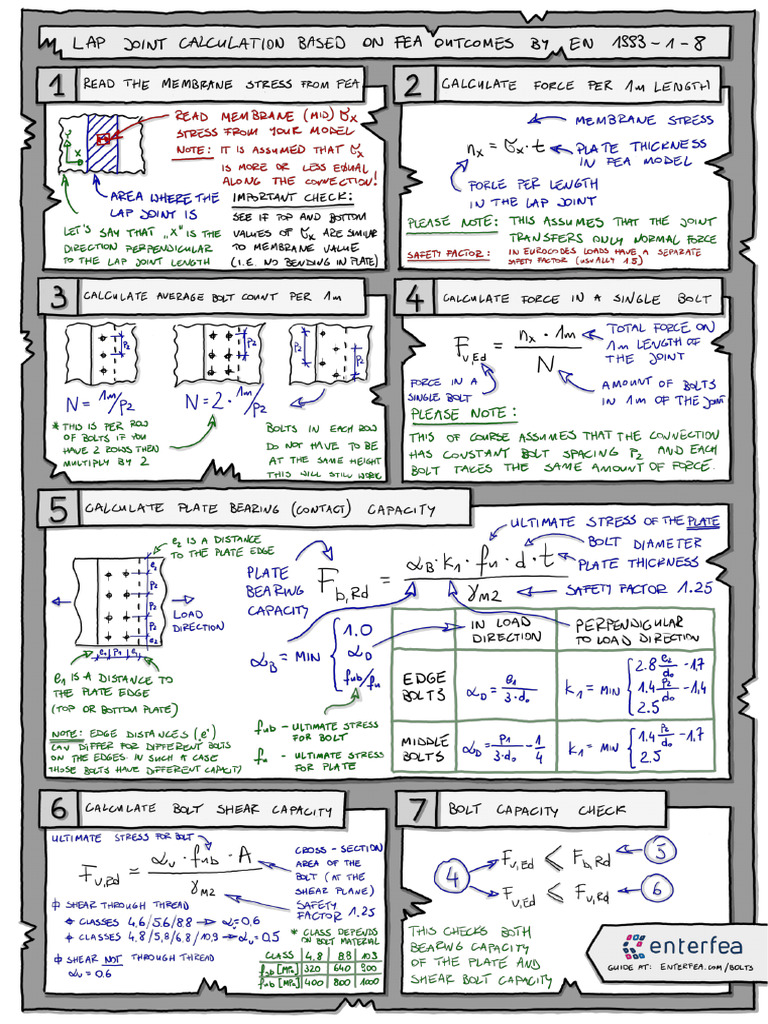 LAP JOINT CALCULATION BASED ON FEA OUTCOMES BY EN 1993-1-8
1 READ THE MEMBRANE STRESS FROM FEA
y
x
READ MEMBRANE (MID) σx
STRESS FROM YOUR MODEL
NOTE: IT IS ASSUMED THAT σx
IS MORE OR LESS EQUAL
ALONG THE CONNECTION!
AREA WHERE THE
LAP JOINT IS
LET'S SAY THAT „X" IS THE
DIRECTION PERPENDICULAR
TO THE LAP JOINT LENGTH
IMPORTANT CHECK:
SEE IF TOP AND BOTTOM
VALUES OF σx ARE SIMILAR
TO MEMBRANE VALUE
(I.E. NO BENDING IN PLATE)
2 CALCULATE FORCE PER 1m LENGTH
MEMBRANE STRESS
nx = σx · t
PLATE THICKNESS
IN FEA MODEL
FORCE PER LENGTH
IN THE LAP JOINT
PLEASE NOTE: THIS ASSUMES THAT THE JOINT
TRANSFERS ONLY NORMAL FORCE
SAFETY FACTOR: IN EUROCODES LOADS HAVE A SEPARATE
SAFETY FACTOR (USUALLY 1.5)
3 CALCULATE AVERAGE BOLT COUNT PER 1m
P2
P2
P2
P2
N = 1m/P2
N = 2 · 1m/P2
* THIS IS PER ROW
OF BOLTS IF YOU
HAVE 2 ROWS THEN
MULTIPLY BY 2
BOLTS IN EACH ROW
DO NOT HAVE TO BE
AT THE SAME HEIGHT
THIS WILL STILL WORK
4 CALCULATE FORCE IN A SINGLE BOLT
Fv,Ed = nx · 1m / N
TOTAL FORCE ON
1m LENGTH OF
THE JOINT
FORCE IN A
SINGLE BOLT
AMOUNT OF BOLTS
IN 1m OF THE JOINT
PLEASE NOTE:
THIS OF COURSE ASSUMES THAT THE CONNECTION
HAS CONSTANT BOLT SPACING P2 AND EACH
BOLT TAKES THE SAME AMOUNT OF FORCE.
5 CALCULATE PLATE BEARING (CONTACT) CAPACITY
e2 IS A DISTANCE
TO THE PLATE EDGE
e2
P2
P2
P2
e2
e1 P1 e1
LOAD
DIRECTION
e1 IS A DISTANCE TO
THE PLATE EDGE
(TOP OR BOTTOM PLATE)
NOTE: EDGE DISTANCES („e")
CAN DIFFER FOR DIFFERENT BOLTS
ON THE EDGES. IN SUCH A CASE
THOSE BOLTS HAVE DIFFERENT CAPACITY
PLATE
BEARING
CAPACITY
Fb,Rd = αB · k1 · fu · d · t / γM2
ULTIMATE STRESS OF THE PLATE
BOLT DIAMETER
PLATE THICKNESS
SAFETY FACTOR 1.25
αB = MIN { 1.0
αD
fub/fu
fub - ULTIMATE STRESS
FOR BOLT
fu - ULTIMATE STRESS
FOR PLATE
IN LOAD
DIRECTION
PERPENDICULAR
TO LOAD DIRECTION
EDGE
BOLTS
αD = e1 / 3·d0
k1 = MIN { 2.8 e2/d0 - 1.7
1.4 P2/d0 - 1.4
2.5
MIDDLE
BOLTS
αD = P1 / 3·d0 - 1/4
k1 = MIN { 1.4 P2/d0 - 1.7
2.5
6 CALCULATE BOLT SHEAR CAPACITY
ULTIMATE STRESS FOR BOLT
Fv,Rd = αv · fub · A / γM2
CROSS-SECTION
AREA OF THE
BOLT (AT THE
SHEAR PLANE)
SAFETY
FACTOR 1.25
SHEAR THROUGH THREAD
CLASSES 4.6/5.6/8.8 → αv=0.6
CLASSES 4.8/5.8/6.8/10.9 → αv=0.5
SHEAR NOT THROUGH THREAD
αv = 0.6
* CLASS DEPENDS
ON BOLT MATERIAL
CLASS 4.8 8.8 10.9
fyb [MPa] 320 640 900
fub [MPa] 400 800 1000
7 BOLT CAPACITY CHECK
4
Fv,Ed < Fb,Rd 5
Fv,Ed < Fv,Rd 6
THIS CHECKS BOTH
BEARING CAPACITY
OF THE PLATE AND
SHEAR BOLT CAPACITY
enterfea
GUIDE AT: ENTERFEA.COM/BOLTS